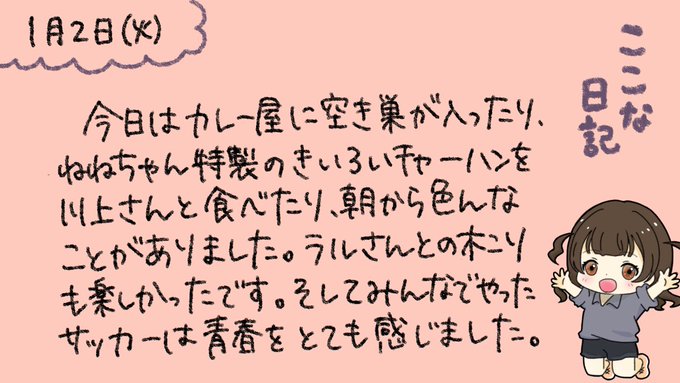 1月2日(火)
ここな
日記
今日はカレー屋に空き巣が入ったり、
ねねちゃん特製のきいろいチャーハンを
川上さんと食べたり、朝から色んな
ことがありました。ラルさんとの木こり
も楽しかったです。そしてみんなでやった
サッカーは青春をとても感じました。